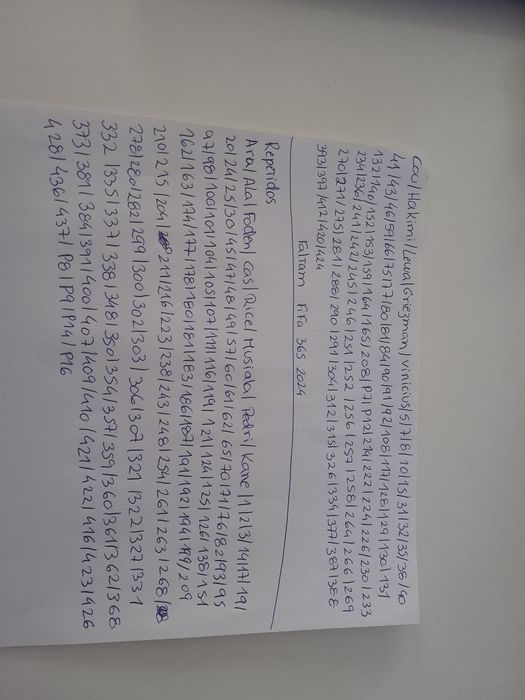 Cou/Hakimi/Lewa/Griezman/vinicius/5/7/8/10/15/31/32/35/38/40
41/43/46/59/66/75/77/80/81/84/90/91/92/108/117/128/129/130/131
132/140/152/153/159/164/165/208/P7/P12/214/222/224/226/230/233
234/236/241/242/245/246/251/252/256/257/258/264/266/269
270/271/235/281/288/290/291/304/312/315/326/334/377/387/388
393/397/412/420/424
Faltam FiFa 365 2024
Repenidos
Ara/Ala/Foden/Cas/Rice/Musiala/Pedri/Kane/1/2/3/14/17/19/
20/24/25/30/45/47/48/49/57/60/61/62/65/70/71/76/82/93/95
97/98/100/101/104/105/107/111/116/119/121/124/125/126/138/151
162/163/174/177/178/180/181/183/186/187/191/192/194/199/209
210/215/204/211/216/223/238/243/248/254/261/263/268/
278/280/282/299/300/302/303/306/307/321/322/327/331
332/335/337/338/348/350/354/357/359/360/361/362/368
373/381/384/391/400/407/409/410/421/422/416/423/426
428/436/437/P8/P9/P14/P16